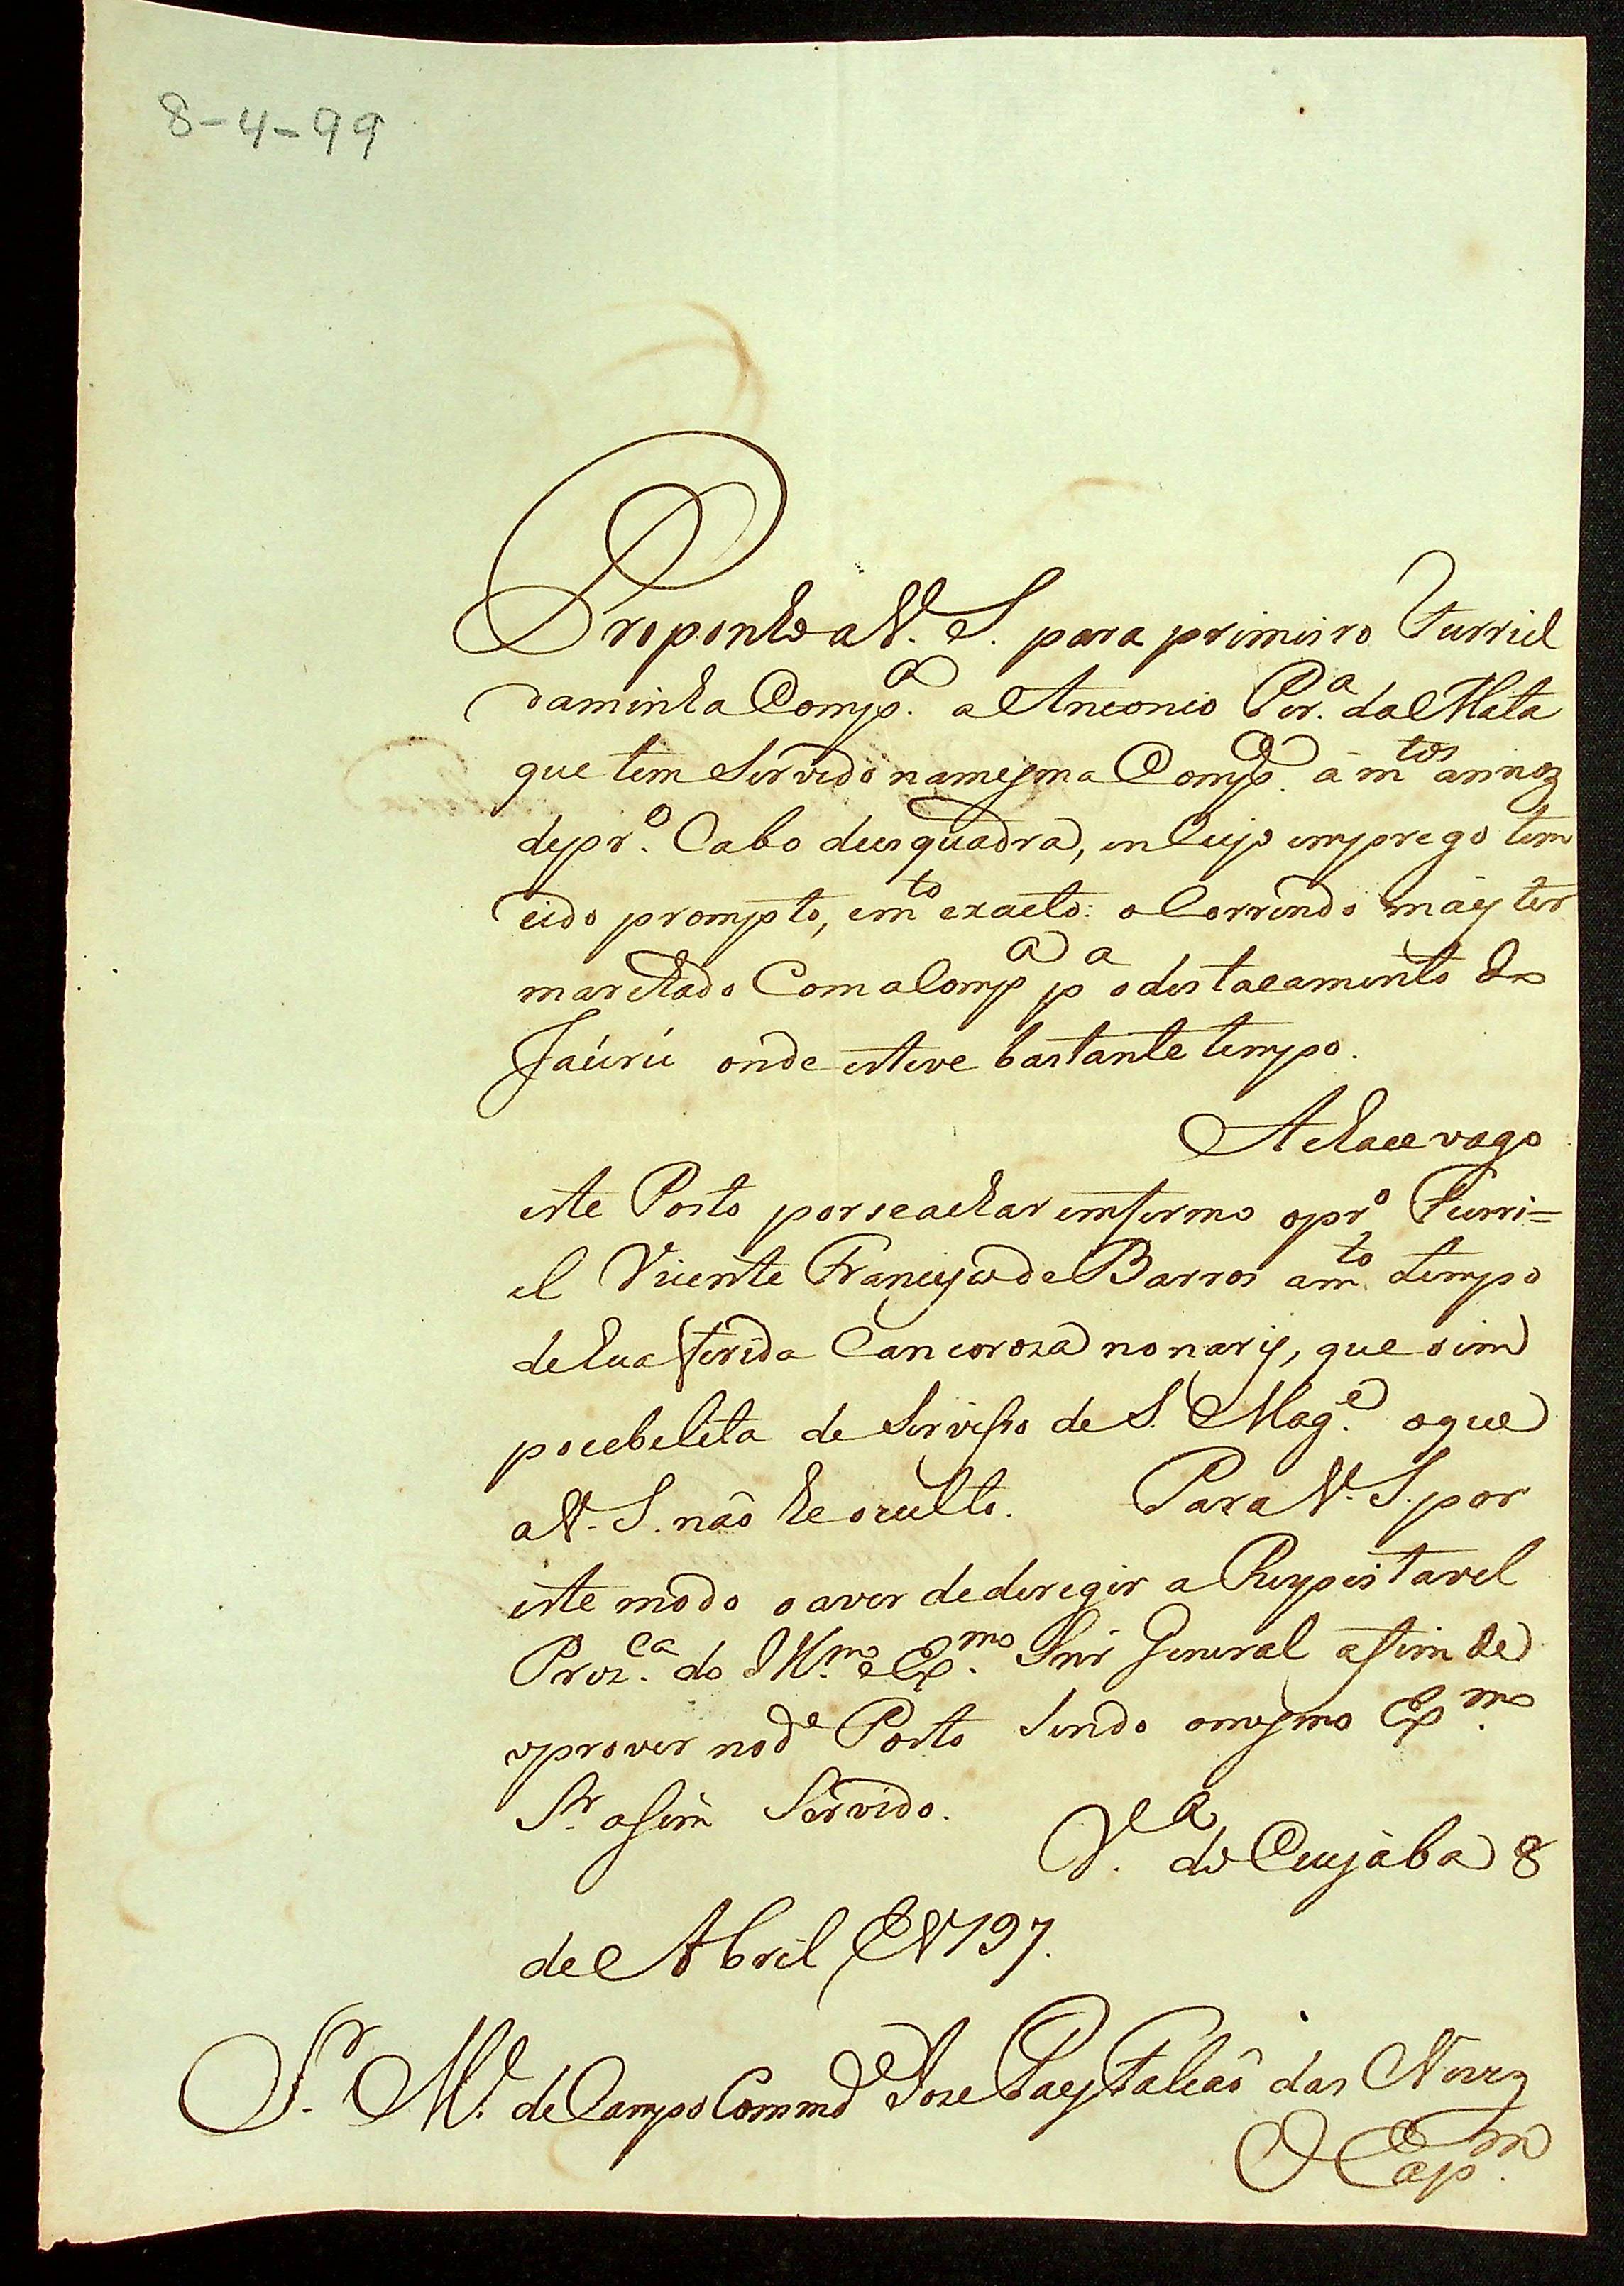 8-4-99
Proponho a V. S. para primeiro Furriel
da minha Comp.ª a Antonio Per.ª da Mata
que tem servido na mesma Comp.ª a m.tos annos
de pr.º Cabo de esquadra, en cujo emprego tem
cido prompto, e m.to exacto: o Correndo mais ter
marchado Com a Comp.ª p.ª o destacamento do
Jaúrú onde esteve bastante tempo.
Achace vago
este Posto por se achar emfermo o pr.º Furri=
el Vicente Francisco de Barros a m.to tempo
de hua ferida Cancoroza no naris, que o im
pocebelita de Servisso de S. Mag.e o que
a V. S. não he oculto. Para V. S. por
este modo o aver de deregir a Respeitavel
Prez.ca do Ill.mo e Ex.mo Snr General afim de
o prover no d.e Posto Sendo o mesmo Ex.mo
S.r assim Servido.
V.ª do Cuyába 8
de Abril de 1797.
S.r M.e de Campo Comm.de Joze Paes Falcaõ das Neves
O Cap.m